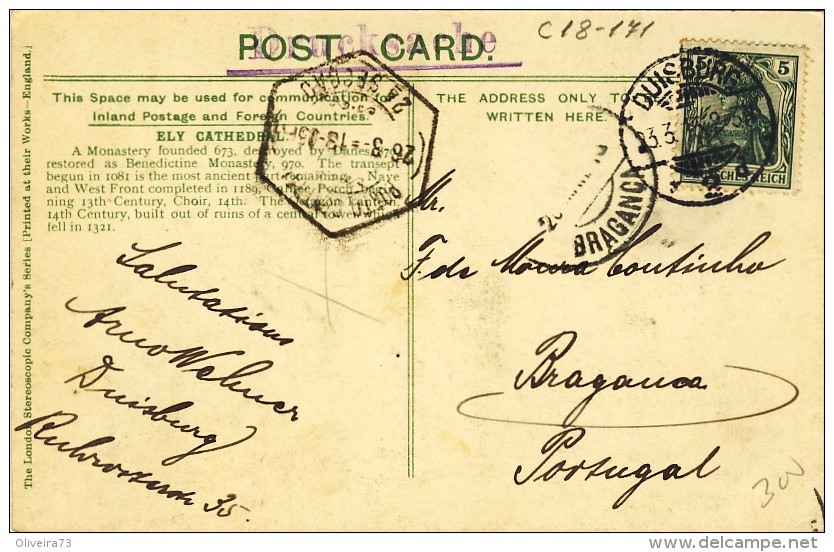 C18-171
Drucksache
POST CARD.
This Space may be used for communication
Inland Postage and Foreign Countries.
ELY CATHEDRAL
A Monastery founded 673, destroyed by Danes 870,
restored as Benedictine Monastery, 970. The transept
begun in 1081 is the most ancient part remaining. Nave
and West Front completed in 1189, Galilee Porch begin-
ning 13th Century, Choir, 14th. The Octagon Lantern,
14th Century, built out of ruins of a central tower which
fell in 1321.
THE ADDRESS ONLY TO
WRITTEN HERE.
DUISBURG
5
DEUTSCHES REICH
BRAGANÇA
2ª SECÇÃO
Salutations
Arno Wehner
Duisburg
35.
Mr.
F de Moura Coutinho
Braganca
Portugal
300
The London Stereoscopic Company's Series [Printed at their Works—England.]
Oliveira73
delcampe.net